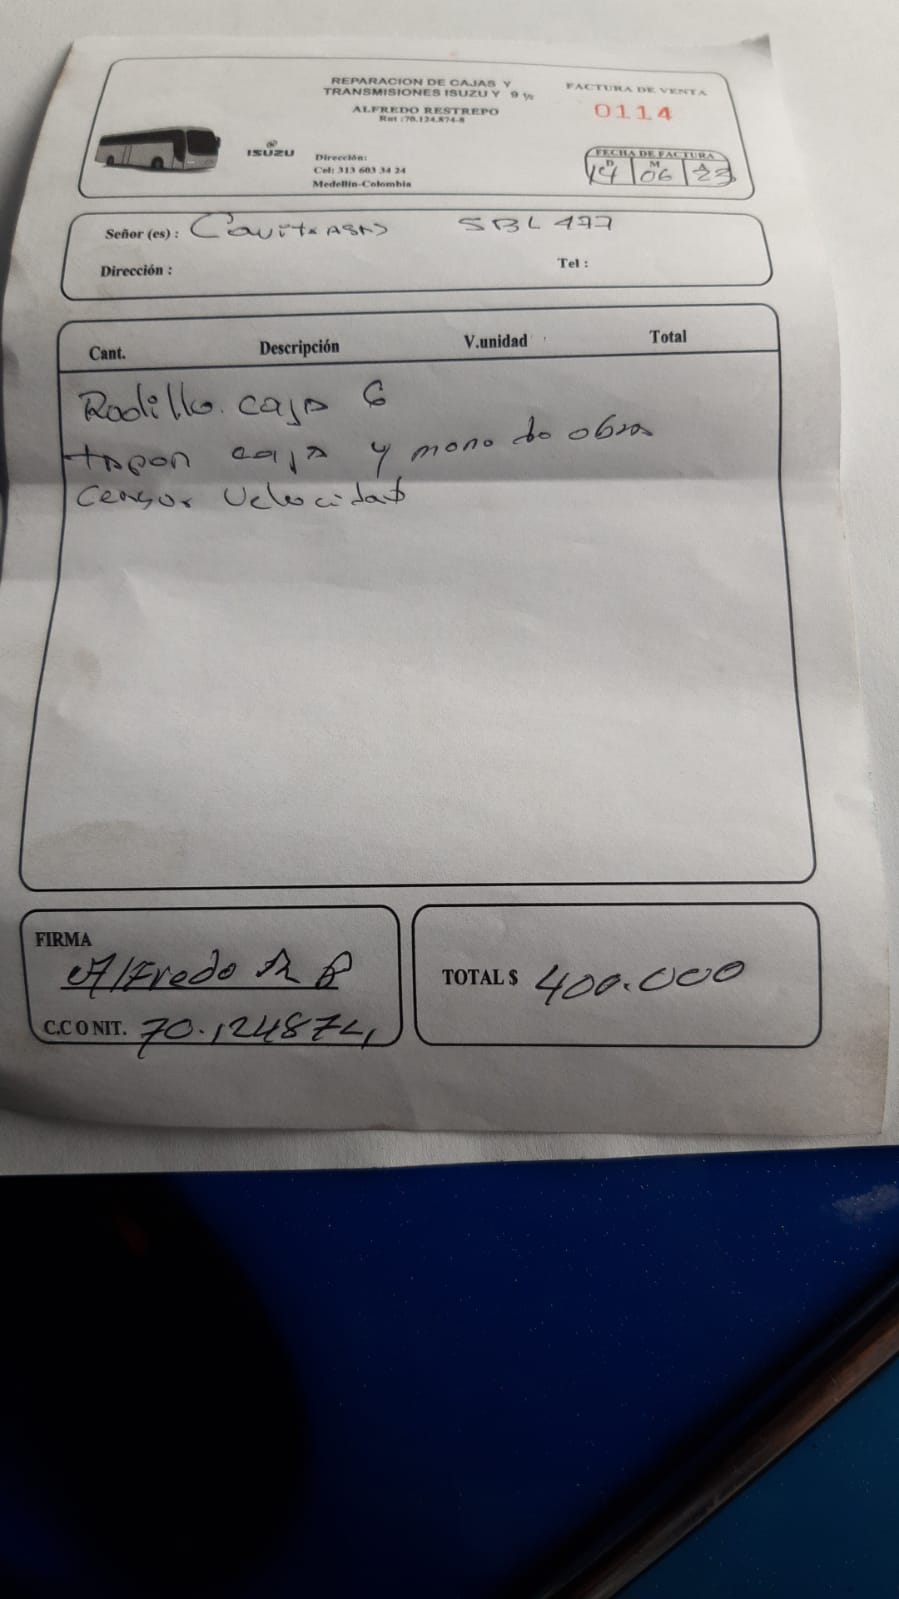 REPARACION DE CAJAS Y
TRANSMISIONES ISUZU Y 9 ½
ALFREDO RESTREPO
Rut :70.124.874-8
FACTURA DE VENTA
0114
ISUZU
Dirección:
Cel: 313 603 34 24
Medellin-Colombia
FECHA DE FACTURA
D M A
14 06 23
Señor (es) : SBL 477
Dirección : Tel :
Cant. Descripción V.unidad Total
Rodillo caja 6
tapon caja y mono do obra
Censor Velocidad
FIRMA
Alfredo R B
C.C O NIT. 70.124874
TOTAL $ 400.000